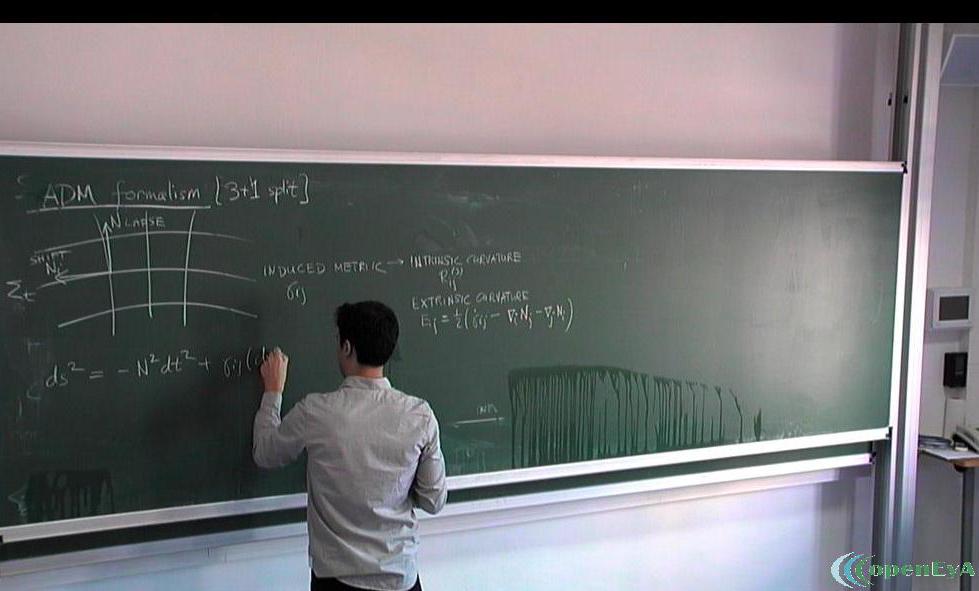 ADM formalism [3+1 split]
N LAPSE
SHIFT
Nᵢ
Σₜ
INDUCED METRIC → INTRINSIC CURVATURE
R⁽³⁾ᵢⱼ
EXTRINSIC CURVATURE
Eᵢⱼ = ½(ġᵢⱼ − ∇ᵢNⱼ − ∇ⱼNᵢ)
gᵢⱼ
ds² = − N²dt² + gᵢⱼ(d
openEyA